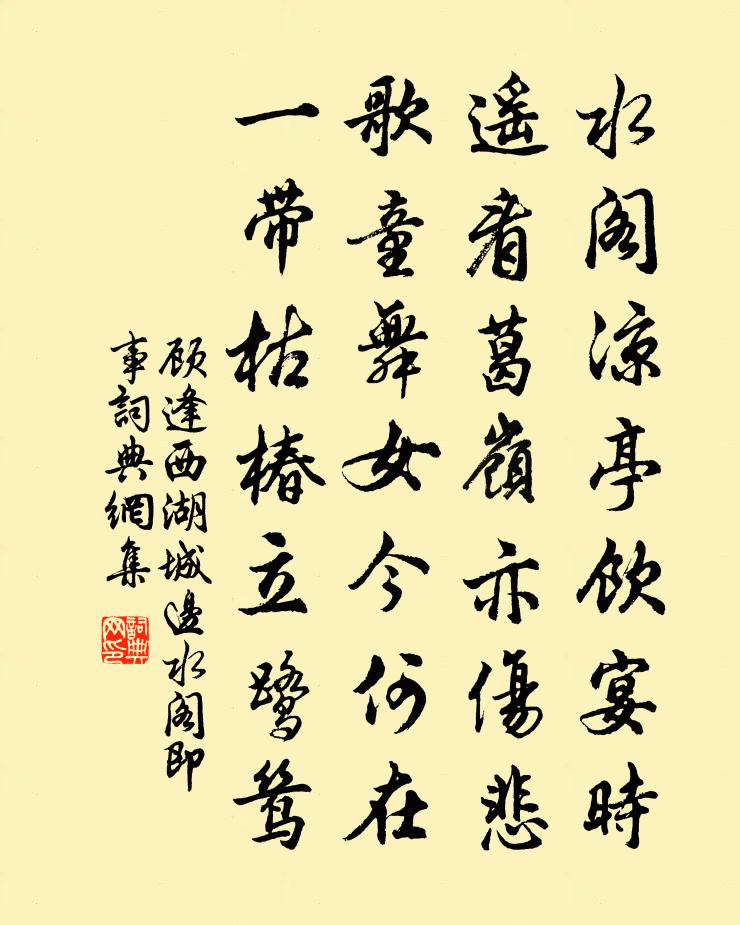 水阁涼亭饮宴時
遥看葛嶺亦傷悲
歌童舞女今何在
一带枯椿立鹭鸶
顾逢西湖城邊水阁即
事詞典網集
詞典网印